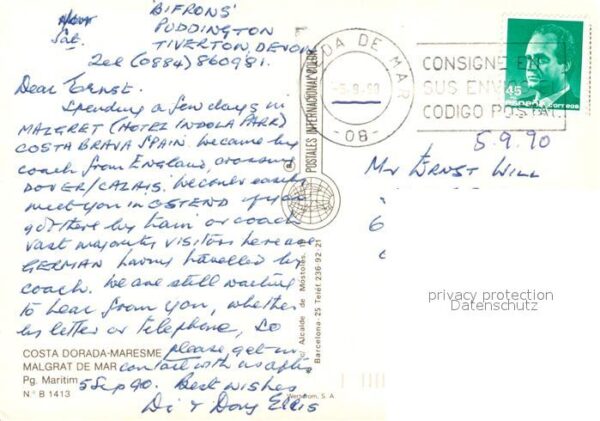 'BIFRONS'
PUDDINGTON
Sat. TIVERTON, DEVON
Tel (0884) 860981.
Dear Ernst.
Spending a few days in
MALGRET (HOTEL INDOLA PARR)
COSTA BRAVA SPAIN. We came by
coach from England, crossing
DOVER/CALAIS. We could easily
meet you in OSTEND if you
got there by train or coach
vast majority visitors here are
GERMAN having travelled by
coach. We are still waiting
to hear from you, whether
by letter or telephone, so
please get in
contact with us after
5 Sep 90. Best wishes
Di & Doug Ellis
COSTA DORADA-MARESME
MALGRAT DE MAR
Pg. Marítim
N.º B 1413
POSTALES INTERNACIONAL COLOR
Alcalde de Móstoles,
Barcelona-25 Telef 236-92-21
DA DE MAR
-5-9-90
-08-
CONSIGNE EN
SUS ENVIOS
CODIGO POSTAL
45
ESPAÑA CORREOS
5.9.90
Mr ERNST WILL
6
privacy protection
Datenschutz
S. A.